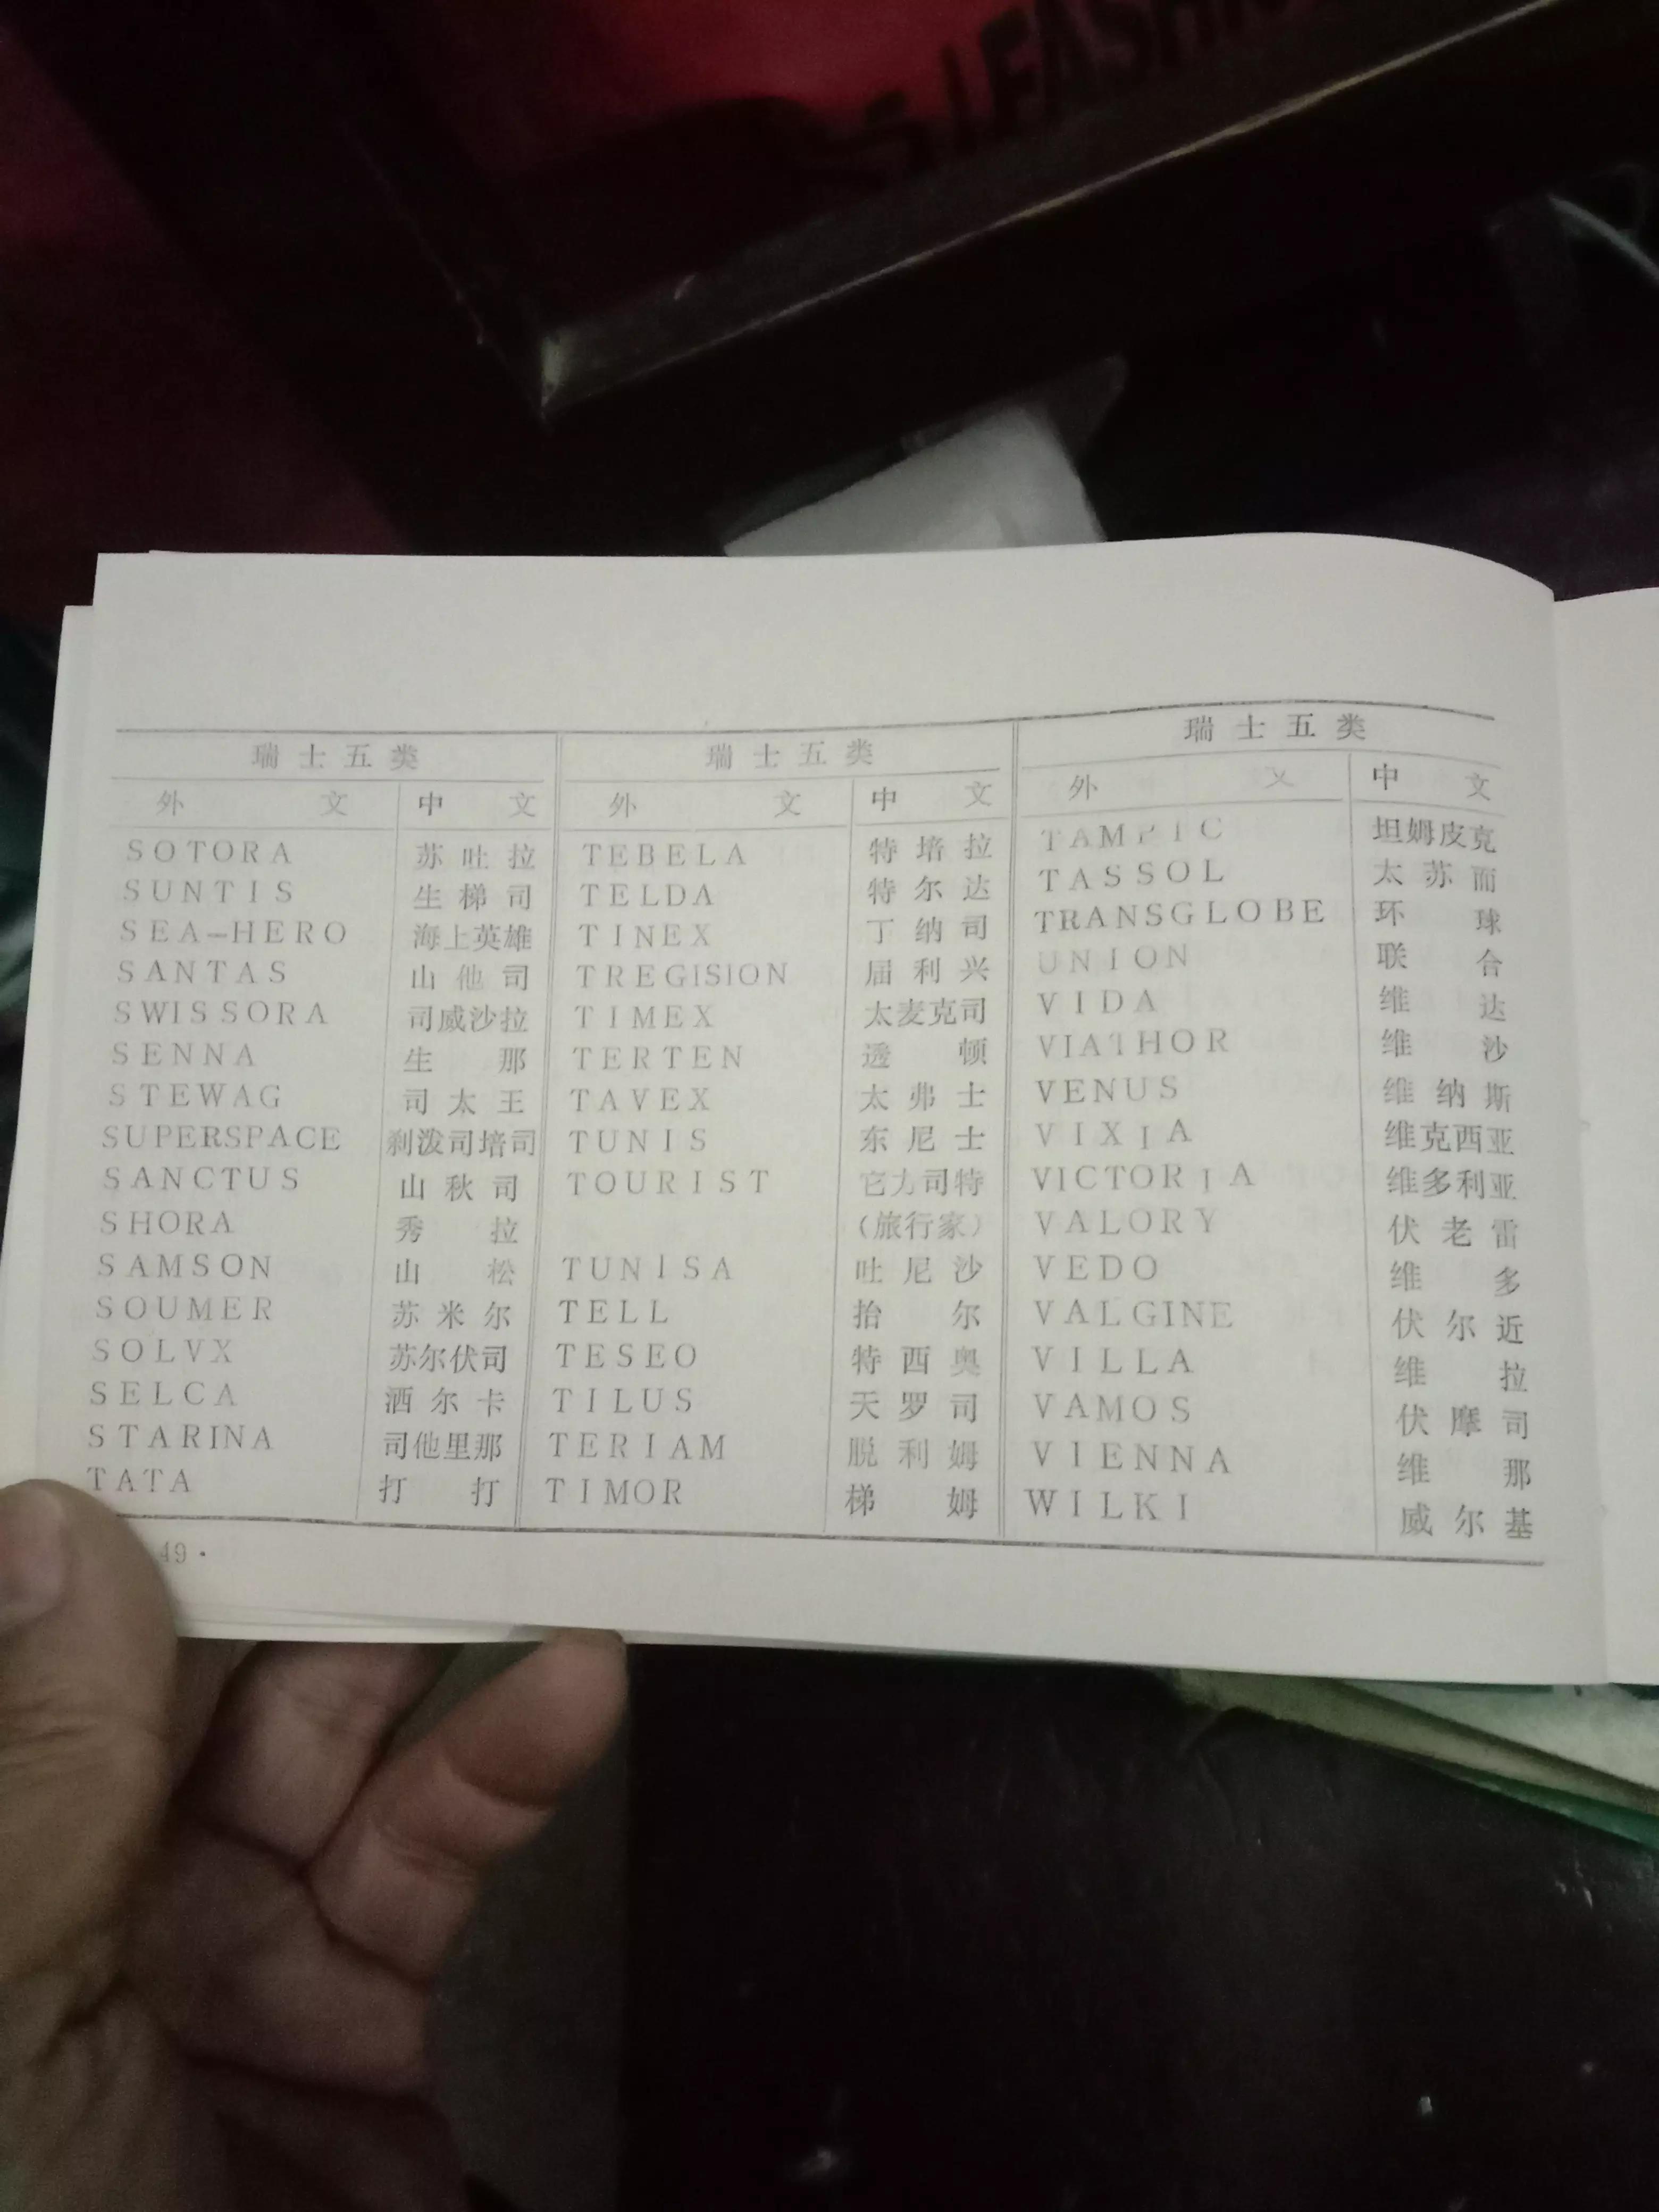 FASHI
瑞士五类 瑞士五类 瑞士五类
外文 中文 外文 中文 外文 中文
SOTORA 苏吐拉 TEBELA 特培拉 TAMPIC 坦姆皮克
SUNTIS 生梯司 TELDA 特尔达 TASSOL 太苏而
SEA-HERO 海上英雄 TINEX 丁纳司 TRANSGLOBE 环球
SANTAS 山他司 TREGISION 屈利兴 UNION 联合
SWISSORA 司威沙拉 TIMEX 太麦克司 VIDA 维达
SENNA 生那 TERTEN 透顿 VIATHOR 维沙
STEWAG 司太王 TAVEX 太弗士 VENUS 维纳斯
SUPERSPACE 刹泼司培司 TUNIS 东尼士 VIXIA 维克西亚
SANCTUS 山秋司 TOURIST 它力司特 VICTORIA 维多利亚
SHORA 秀拉 (旅行家) VALORY 伏老雷
SAMSON 山松 TUNISA 吐尼沙 VEDO 维多
SOUMER 苏米尔 TELL 抬尔 VALGINE 伏尔近
SOLVX 苏尔伏司 TESEO 特西奥 VILLA 维拉
SELCA 洒尔卡 TILUS 天罗司 VAMOS 伏摩司
STARINA 司他里那 TERIAM 脱利姆 VIENNA 维那
TATA 打打 TIMOR 梯姆 WILKI 威尔基
49·